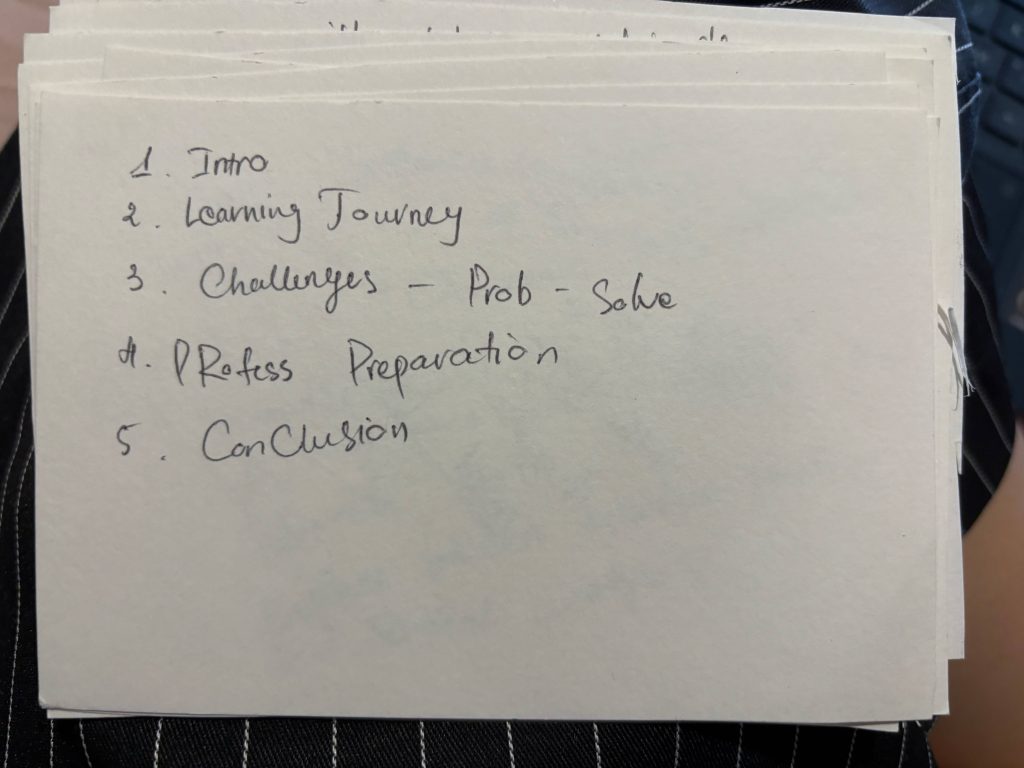 1. Intro
2. Learning Journey
3. Challenges - Prob - Solve
4. PRofess Preparation
5. ConClusion